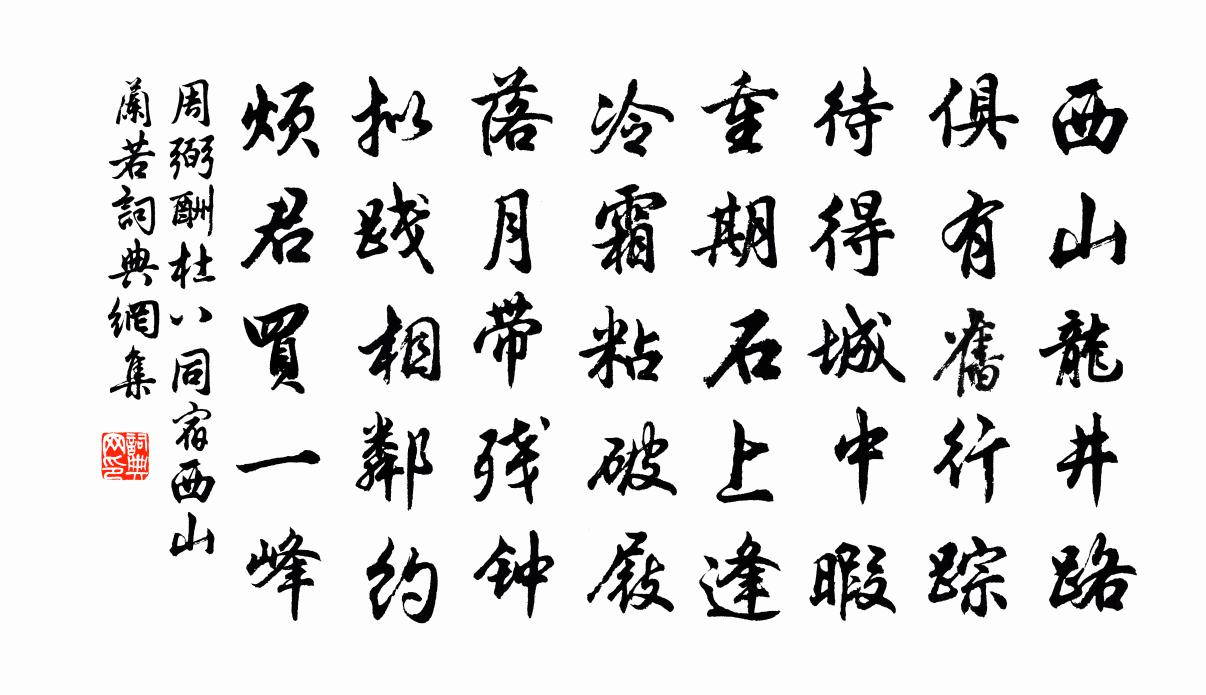 西山龍井路
俱有舊行踪
待得城中暇
重期石上逢
冷霜粘破屐
落月带残钟
拟践相鄰約
煩君買一峰
周弼酬杜八同宿西山
蘭若詞典網集
詞典
网印